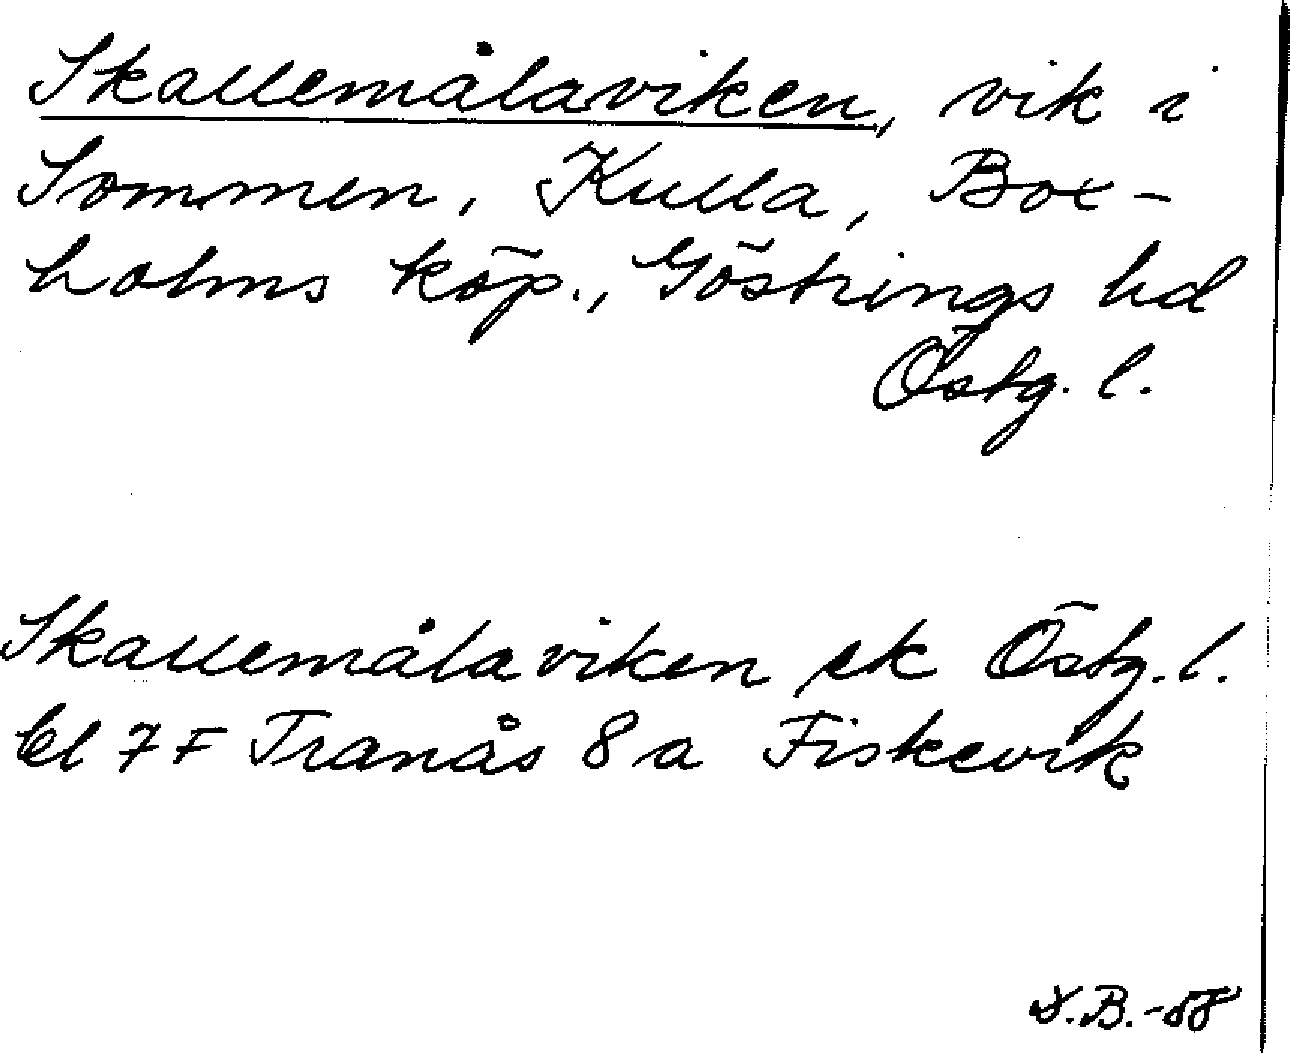 Skallemålaviken, vik i
Sommen, Kulla, Box-
holms köp., Göstrings hd
Östg. l.
Skallemålaviken ek Östg. l.
bl 7 F Tranås 8 a Fiskevik
B.-58